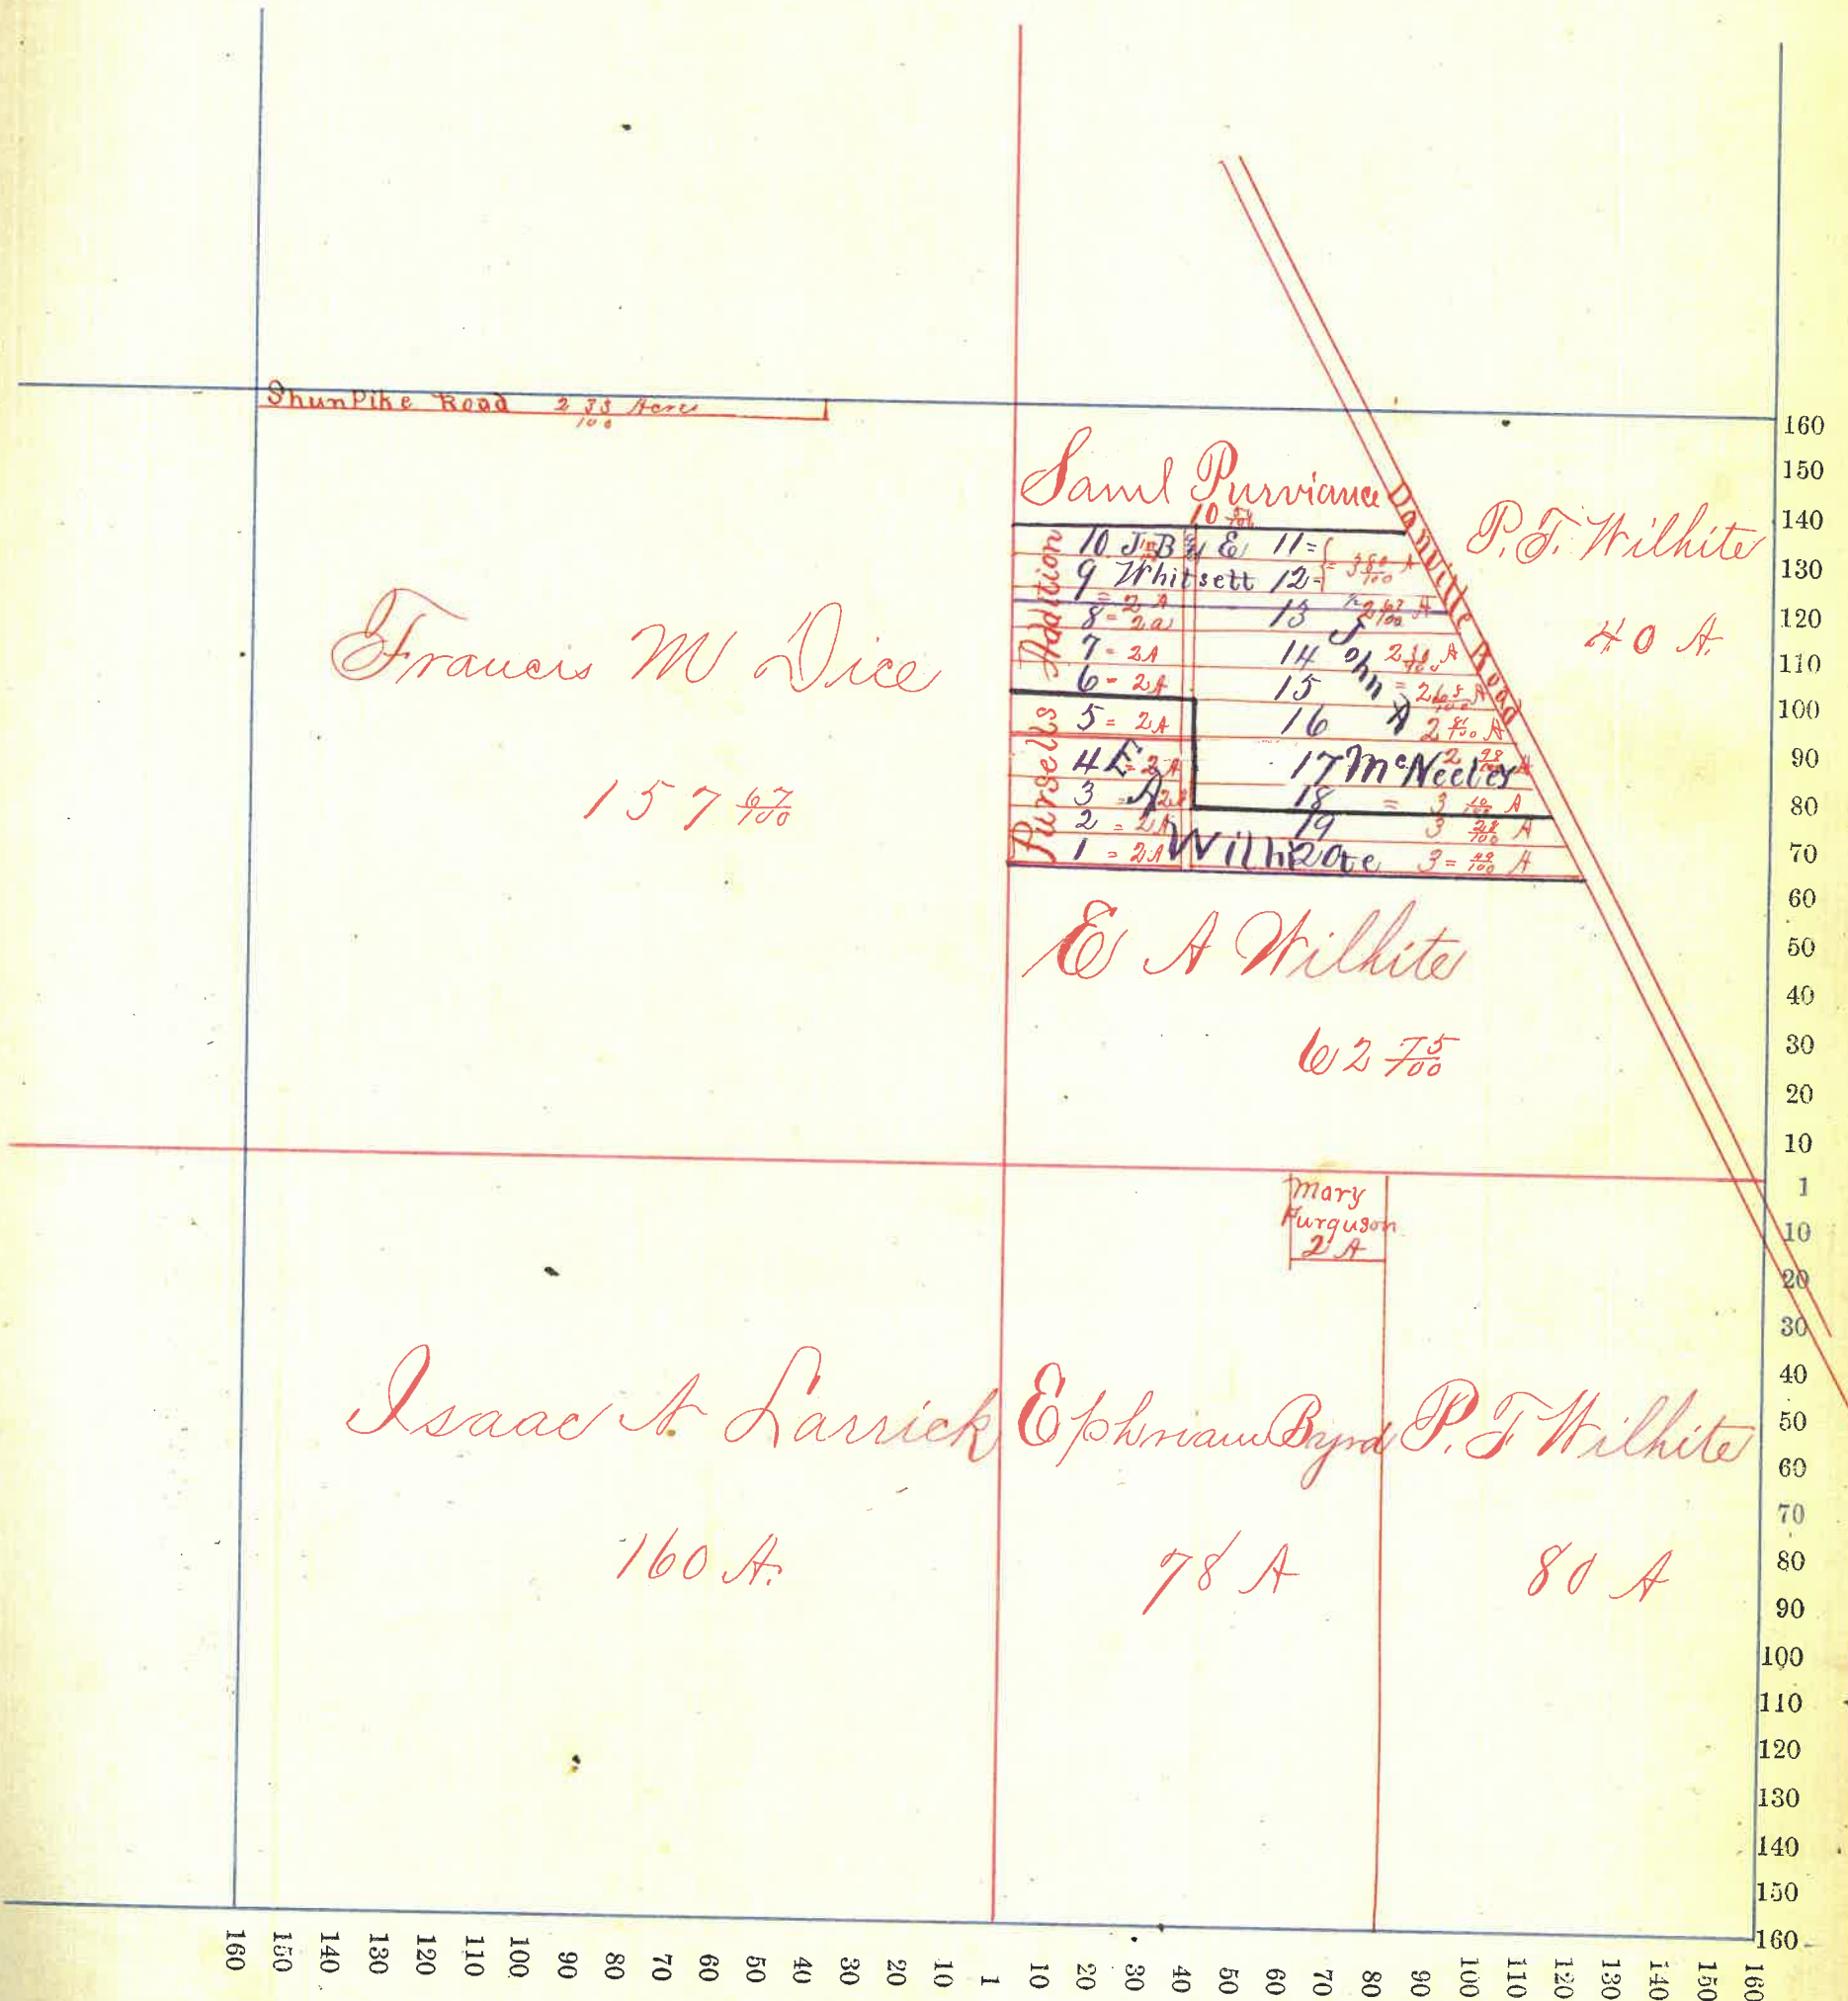 ShunPike Road 2 38/100 Acres
Saml Purviance
10
Danville Road
P. T. Wilhite
40 A.
Francis M Dice
157 67/100
Pursells Addition
10 J B & E 11 =
9 Whitsett 12 = 3 80/100 A
= 2 A
8 = 2 a 13 2 62/100 A
7 = 2 A 14 2 A
6 = 2 A 15 = 2 65/100 A
5 = 2 A 16 2 81/100 A
4 = 2 A 17 2 98/100 A
3 = 2 A 18 = 3 10/100 A
2 = 2 A 19 3 28/100 A
1 = 2 A 20 3 = 49/100 A
John A McNeeley
E A Wilhite
E A Wilhite
62 75/100
Mary
Furguson
2 A
Isaac A Larrick
160 A.
Ephriam Byrd
78 A
P. T Wilhite
80 A
160
150
140
130
120
110
100
90
80
70
60
50
40
30
20
10
1
10
20
30
40
50
60
70
80
90
100
110
120
130
140
150
160
160 150 140 130 120 110 100 90 80 70 60 50 40 30 20 10 1 10 20 30 40 50 60 70 80 90 100 110 120 130 140 150 160